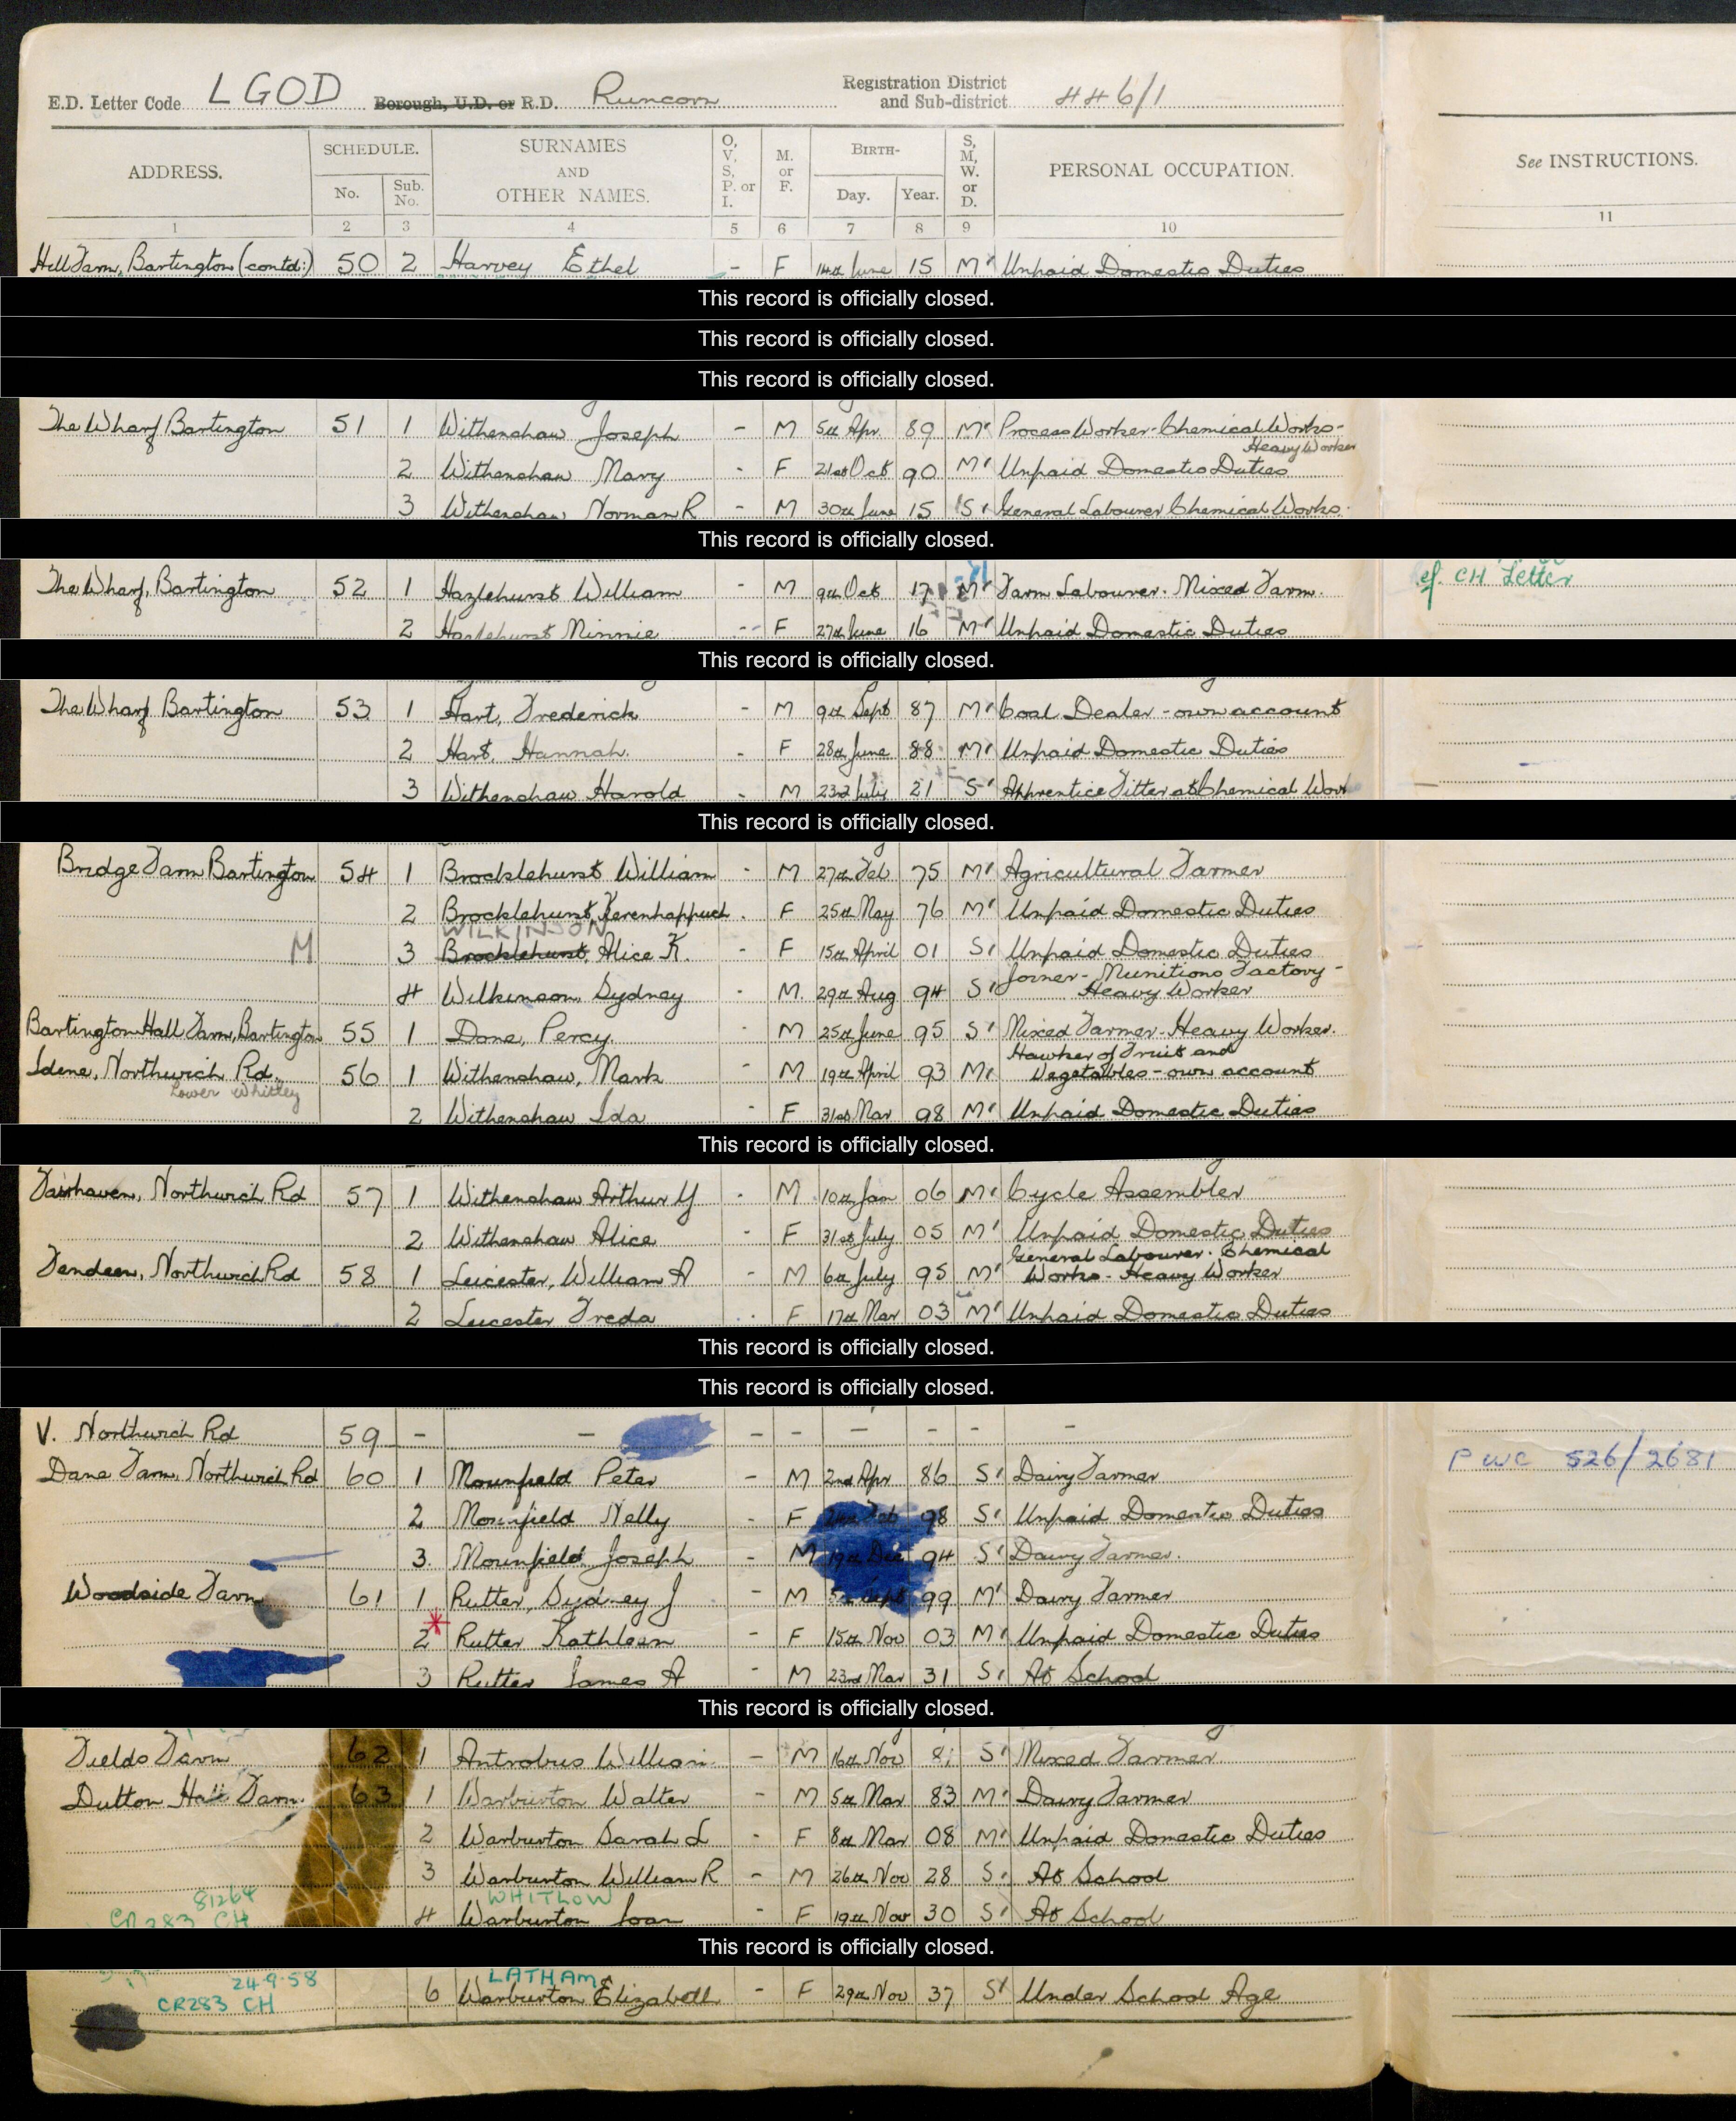 E.D. Letter Code LGOD Borough, U.D. or R.D. Runcorn Registration District and Sub-district 446/1
ADDRESS. SCHEDULE. No. Sub. No. SURNAMES AND OTHER NAMES. O, V, S, P. or I. M. or F. BIRTH- Day. Year. S, M, W. or D. PERSONAL OCCUPATION. See INSTRUCTIONS.
1 2 3 4 5 6 7 8 9 10 11
Hill Farm, Bartington (contd:) 50 2 Harvey Ethel - F 14th June 15 M Unpaid Domestic Duties
This record is officially closed.
This record is officially closed.
This record is officially closed.
The Wharf Bartington 51 1 Withenshaw Joseph - M 5th Apr 89 M Process Worker-Chemical Works-
Heavy Worker
2 Withenshaw Mary - F 21st Oct 90 M Unpaid Domestic Duties
3 Withenshaw Norman R - M 30th June 15 S General Labourer Chemical Works.
This record is officially closed.
The Wharf, Bartington 52 1 Hazlehurst William - M 9th Oct 17 M Farm Labourer. Mixed Farm. CH Letter
2 Hazlehurst Minnie - F 27th June 16 M Unpaid Domestic Duties
This record is officially closed.
The Wharf Bartington 53 1 Hart, Frederick - M 9th Sept 87 M Coal Dealer - own account
2 Hart, Hannah - F 28th June 88 M Unpaid Domestic Duties
3 Withenshaw Harold - M 23rd July 21 S Apprentice Fitter at Chemical Work
This record is officially closed.
Bridge Farm Bartington 54 1 Brocklehurst William - M 27th Feb 75 M Agricultural Farmer
2 Brocklehurst, Kerenhappuch - F 25th May 76 M Unpaid Domestic Duties
WILKINSON
M 3 Brocklehurst, Alice K. - F 15th April 01 S Unpaid Domestic Duties
Joiner - Munitions Factory -
4 Wilkinson, Sydney - M. 29th Aug 94 S Heavy Worker
Bartington Hall Farm, Bartington 55 1 Done, Percy - M 25th June 95 S Mixed Farmer - Heavy Worker.
Hawker of Fruit and
Idene, Northwich Rd. 56 1 Withenshaw, Mark - M 19th April 93 M Vegetables - own account
Lower Whitley
2 Withenshaw Ida - F 31st Mar 98 M Unpaid Domestic Duties
This record is officially closed.
Fairhaven, Northwich Rd 57 1 Withenshaw Arthur Y - M 10th Jan 06 M Cycle Assembler
2 Withenshaw Alice - F 31st July 05 M Unpaid Domestic Duties
General Labourer. Chemical
Northwich Rd 58 1 Leicester, William A - M 6th July 95 M Works - Heavy Worker
2 Leicester Freda - F 17th Mar 03 M Unpaid Domestic Duties
This record is officially closed.
This record is officially closed.
V. Northwich Rd 59 - - - - - - - -
Dane Farm, Northwich Rd 60 1 Mounfield Peter - M 2nd Apr 86 S Dairy Farmer PWC 526/2681
2 Mounfield Nelly - F Feb 98 S Unpaid Domestic Duties
3. Mounfield Joseph - M 19th Dec 94 S Dairy Farmer.
Woodside Farm 61 1 Rutter, Sydney J - M Sept 99 M Dairy Farmer
2 Rutter Kathleen - F 15th Nov 03 M Unpaid Domestic Duties
3 Rutter James A - M 23rd Mar 31 S At School
This record is officially closed.
Fields Farm 62 1 Antrobus William - M 16th Nov 81 S Mixed Farmer
Dutton Hall Farm. 63 1 Warburton Walter - M 5th Mar 83 M Dairy Farmer
2 Warburton Sarah L - F 8th Mar 08 M Unpaid Domestic Duties
3 Warburton William R - M 26th Nov 28 S At School
81264 WHITLOW
CR283 CH 4 Warburton Joan - F 19th Nov 30 S At School
This record is officially closed.
24.9.58 LATHAM
CR283 CH 6 Warburton Elizabeth - F 29th Nov 37 S Under School Age